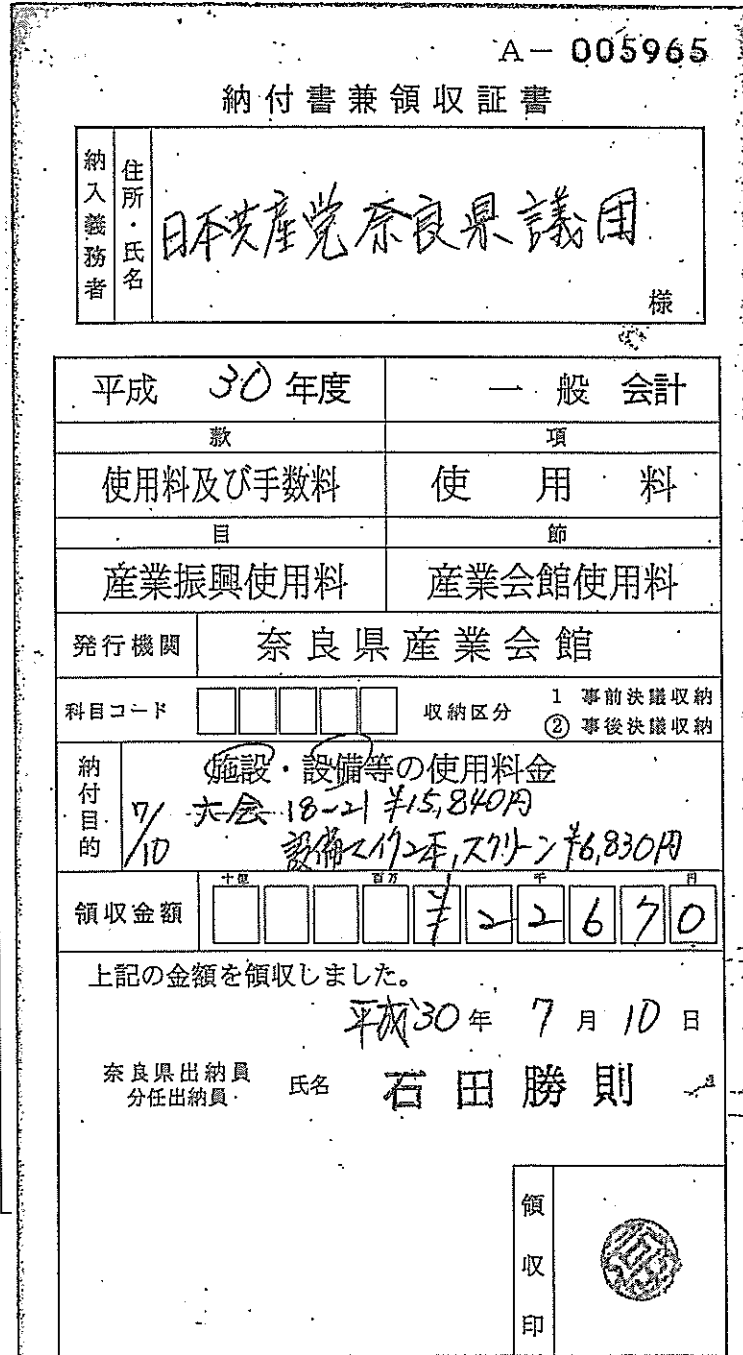 A－005965
納付書兼領収証書
納入義務者
住所・氏名
日本共産党奈良県議団
様
平成 30 年度 一般 会計
款 項
使用料及び手数料 使用料
目 節
産業振興使用料 産業会館使用料
発行機関 奈良県産業会館
科目コード 収納区分 1 事前決議収納
② 事後決議収納
納付目的
施設・設備等の使用料金
7/10 大会 18-21 ¥15,840円
設備マイク2本,スクリーン ¥6,830円
十億 百万 千 円
領収金額 ¥22670
上記の金額を領収しました。
平成30年 7月 10日
奈良県出納員
分任出納員 氏名 石田勝則
領収印